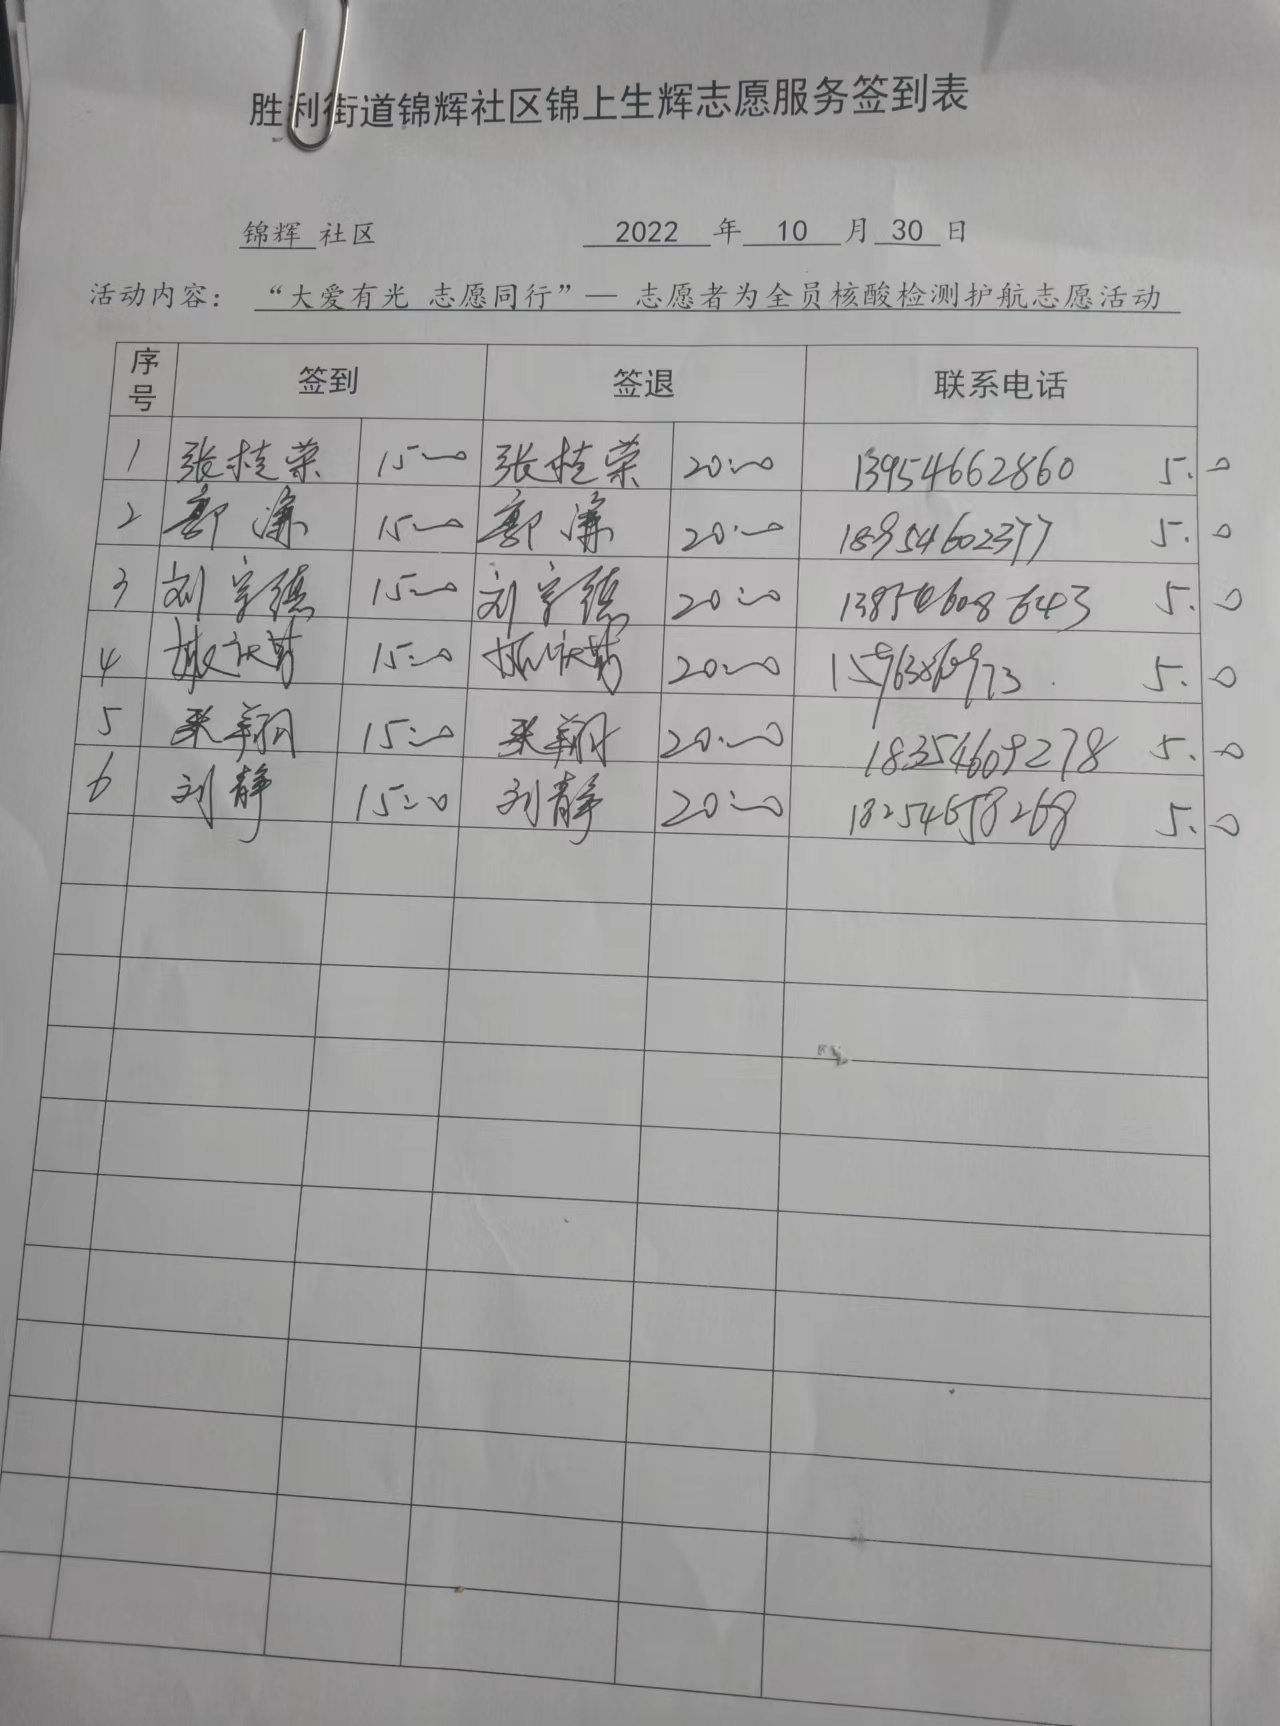 胜利街道锦辉社区锦上生辉志愿服务签到表
锦辉 社区 2022 年 10 月 30 日
活动内容： “大爱有光 志愿同行”— 志愿者为全员核酸检测护航志愿活动
序号 签到 签退 联系电话
1 张桂荣 15:00 张桂荣 20:00 13954662860 5.0
2 郭濂 15:00 郭濂 20:00 18954602377 5.0
3 刘宇德 15:00 刘宇德 20:00 13854608643 5.0
4 15:00 20:00 5.0
5 张翔 15:00 张翔 20:00 18354609278 5.0
6 刘静 15:00 刘静 20:00 18254658268 5.0